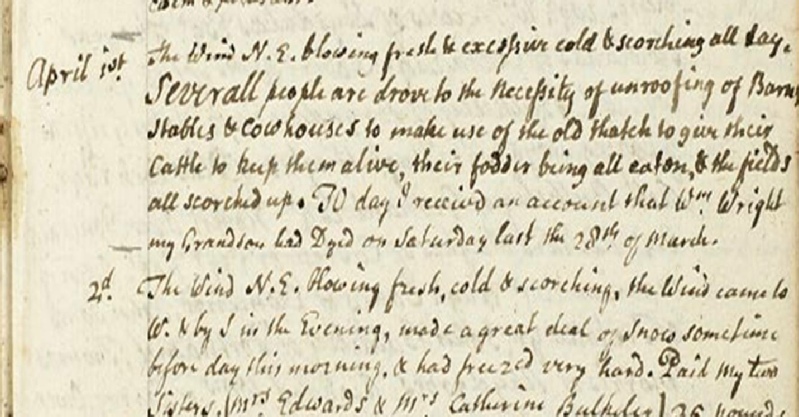 April 1st The Wind N.E. blowing fresh & excessive cold & scorching all day.
Severall people are drove to the Necessity of unroofing of Barns
Stables & Cowhouses to make use of the old thatch to give their
Cattle to keep them alive, their fodder being all eaten, & the fields
all scorched up. To day I receivd an account that Wm Wright
my Grandson had Dyed on Saturday last the 28th of March.
2d. The Wind N.E. blowing fresh, cold & scorching, the Wind came to
W. & by S in the Evening, made a great deal of Snow sometime
before day this morning, & had freezed very hard. Paid my two
Sisters (Mrs Edwards & Mrs Catherine Bulkeley) 26 pounds